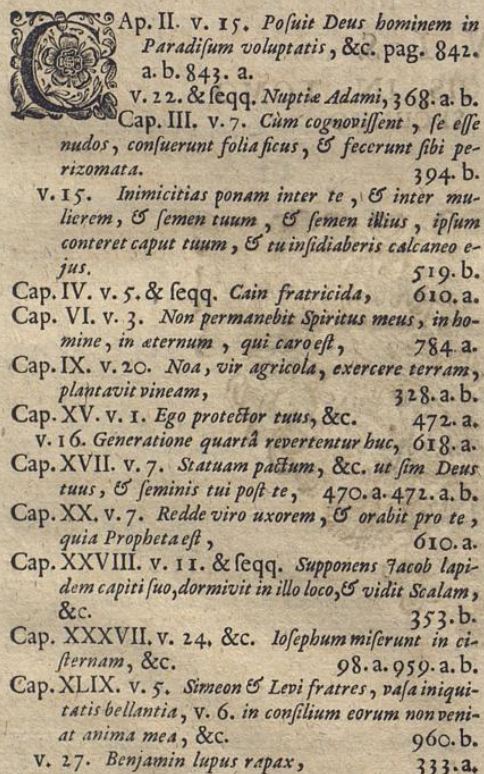 CAp. II. v. 15. Poſuit Deus hominem in
Paradiſum voluptatis, &c. pag. 842.
a. b. 843. a.
v. 22. & ſeqq. Nuptiæ Adami, 368. a. b.
Cap. III. v. 7. Cùm cognoviſſent, ſe eſſe
nudos, conſuerunt folia ficus, & fecerunt ſibi pe-
rizomata. 394. b.
v. 15. Inimicitias ponam inter te, & inter mu-
lierem, & ſemen tuum, & ſemen illius, ipſum
conteret caput tuum, & tu inſidiaberis calcaneo e-
jus. 519. b.
Cap. IV. v. 5. & ſeqq. Cain fratricida, 610. a.
Cap. VI. v. 3. Non permanebit Spiritus meus, in ho-
mine, in æternum, qui caro eſt, 784. a.
Cap. IX. v. 20. Noa, vir agricola, exercere terram,
plantavit vineam, 328. a. b.
Cap. XV. v. 1. Ego protector tuus, &c. 472. a.
v. 16. Generatione quartâ revertentur huc, 618. a.
Cap. XVII. v. 7. Statuam pactum, &c. ut ſim Deus
tuus, & ſeminis tui poſt te, 470. a. 472. a. b.
Cap. XX. v. 7. Redde viro uxorem, & orabit pro te,
quia Propheta eſt, 610. a.
Cap. XXVIII. v. 11. & ſeqq. Supponens Jacob lapi-
dem capiti ſuo, dormivit in illo loco, & vidit Scalam,
&c. 353. b.
Cap. XXXVII. v. 24, &c. Ioſephum miſerunt in ci-
ſternam, &c. 98. a. 959. a. b.
Cap. XLIX. v. 5. Simeon & Levi fratres, vaſa iniqui-
tatis bellantia, v. 6. in conſilium eorum non veni-
at anima mea, &c. 960. b.
v. 27. Benjamin lupus rapax, 333. a.